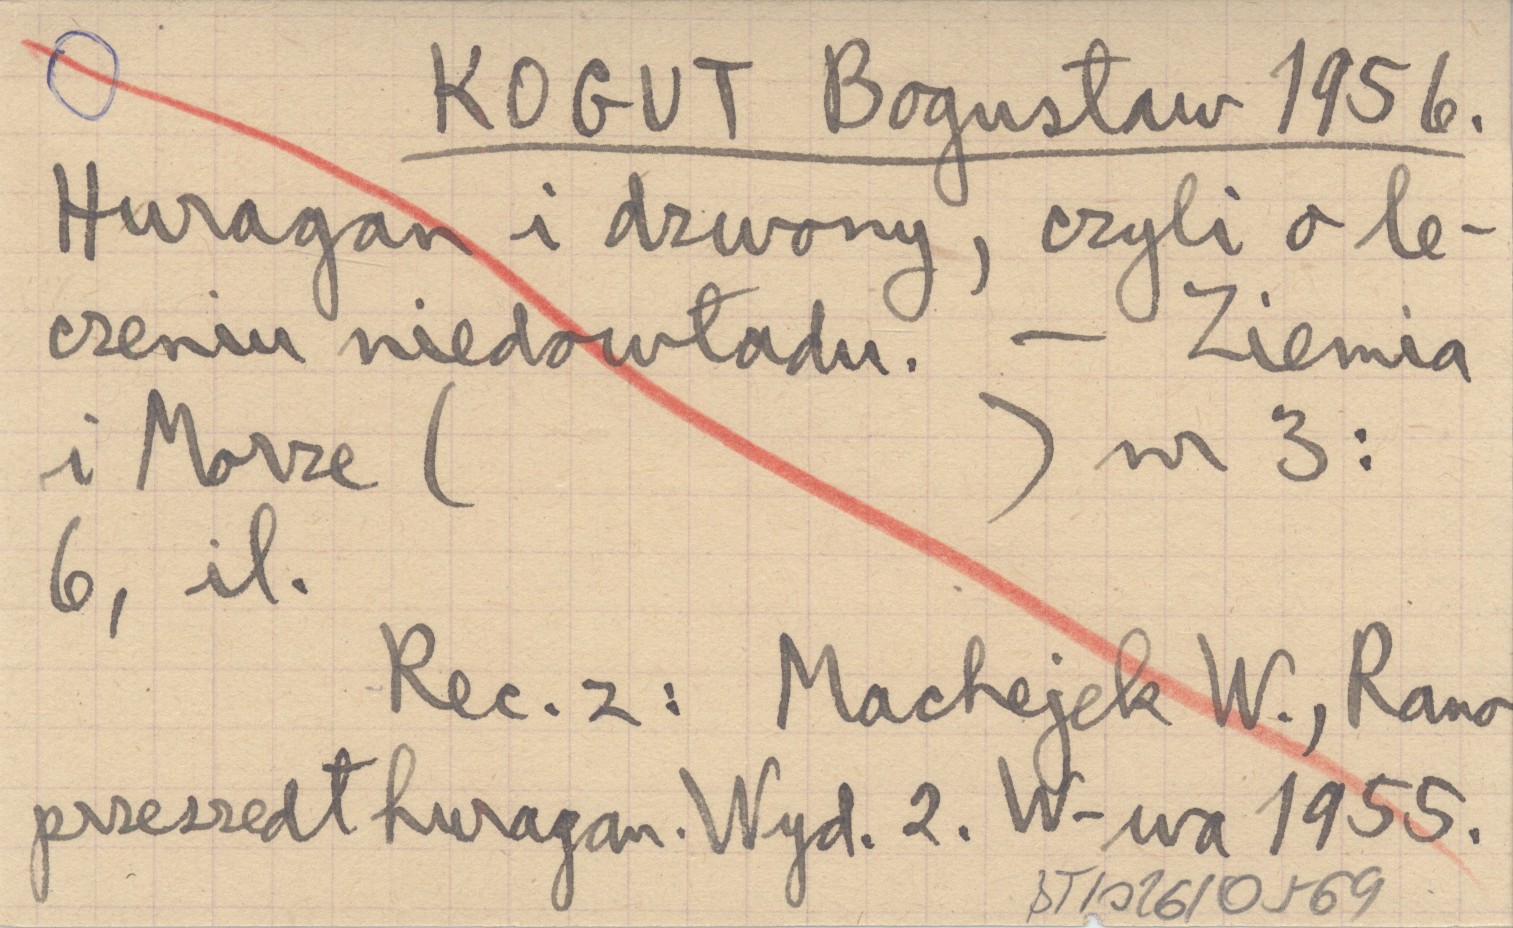 KOGUT Bogusław 1956.
Huragan i dzwony, czyli o le-
czeniu niedowładu. — Ziemia
i Morze ( ) nr 3:
6, il.
Rec. z: Machejek W., Rano
przeszedł huragan. Wyd. 2. W-wa 1955.